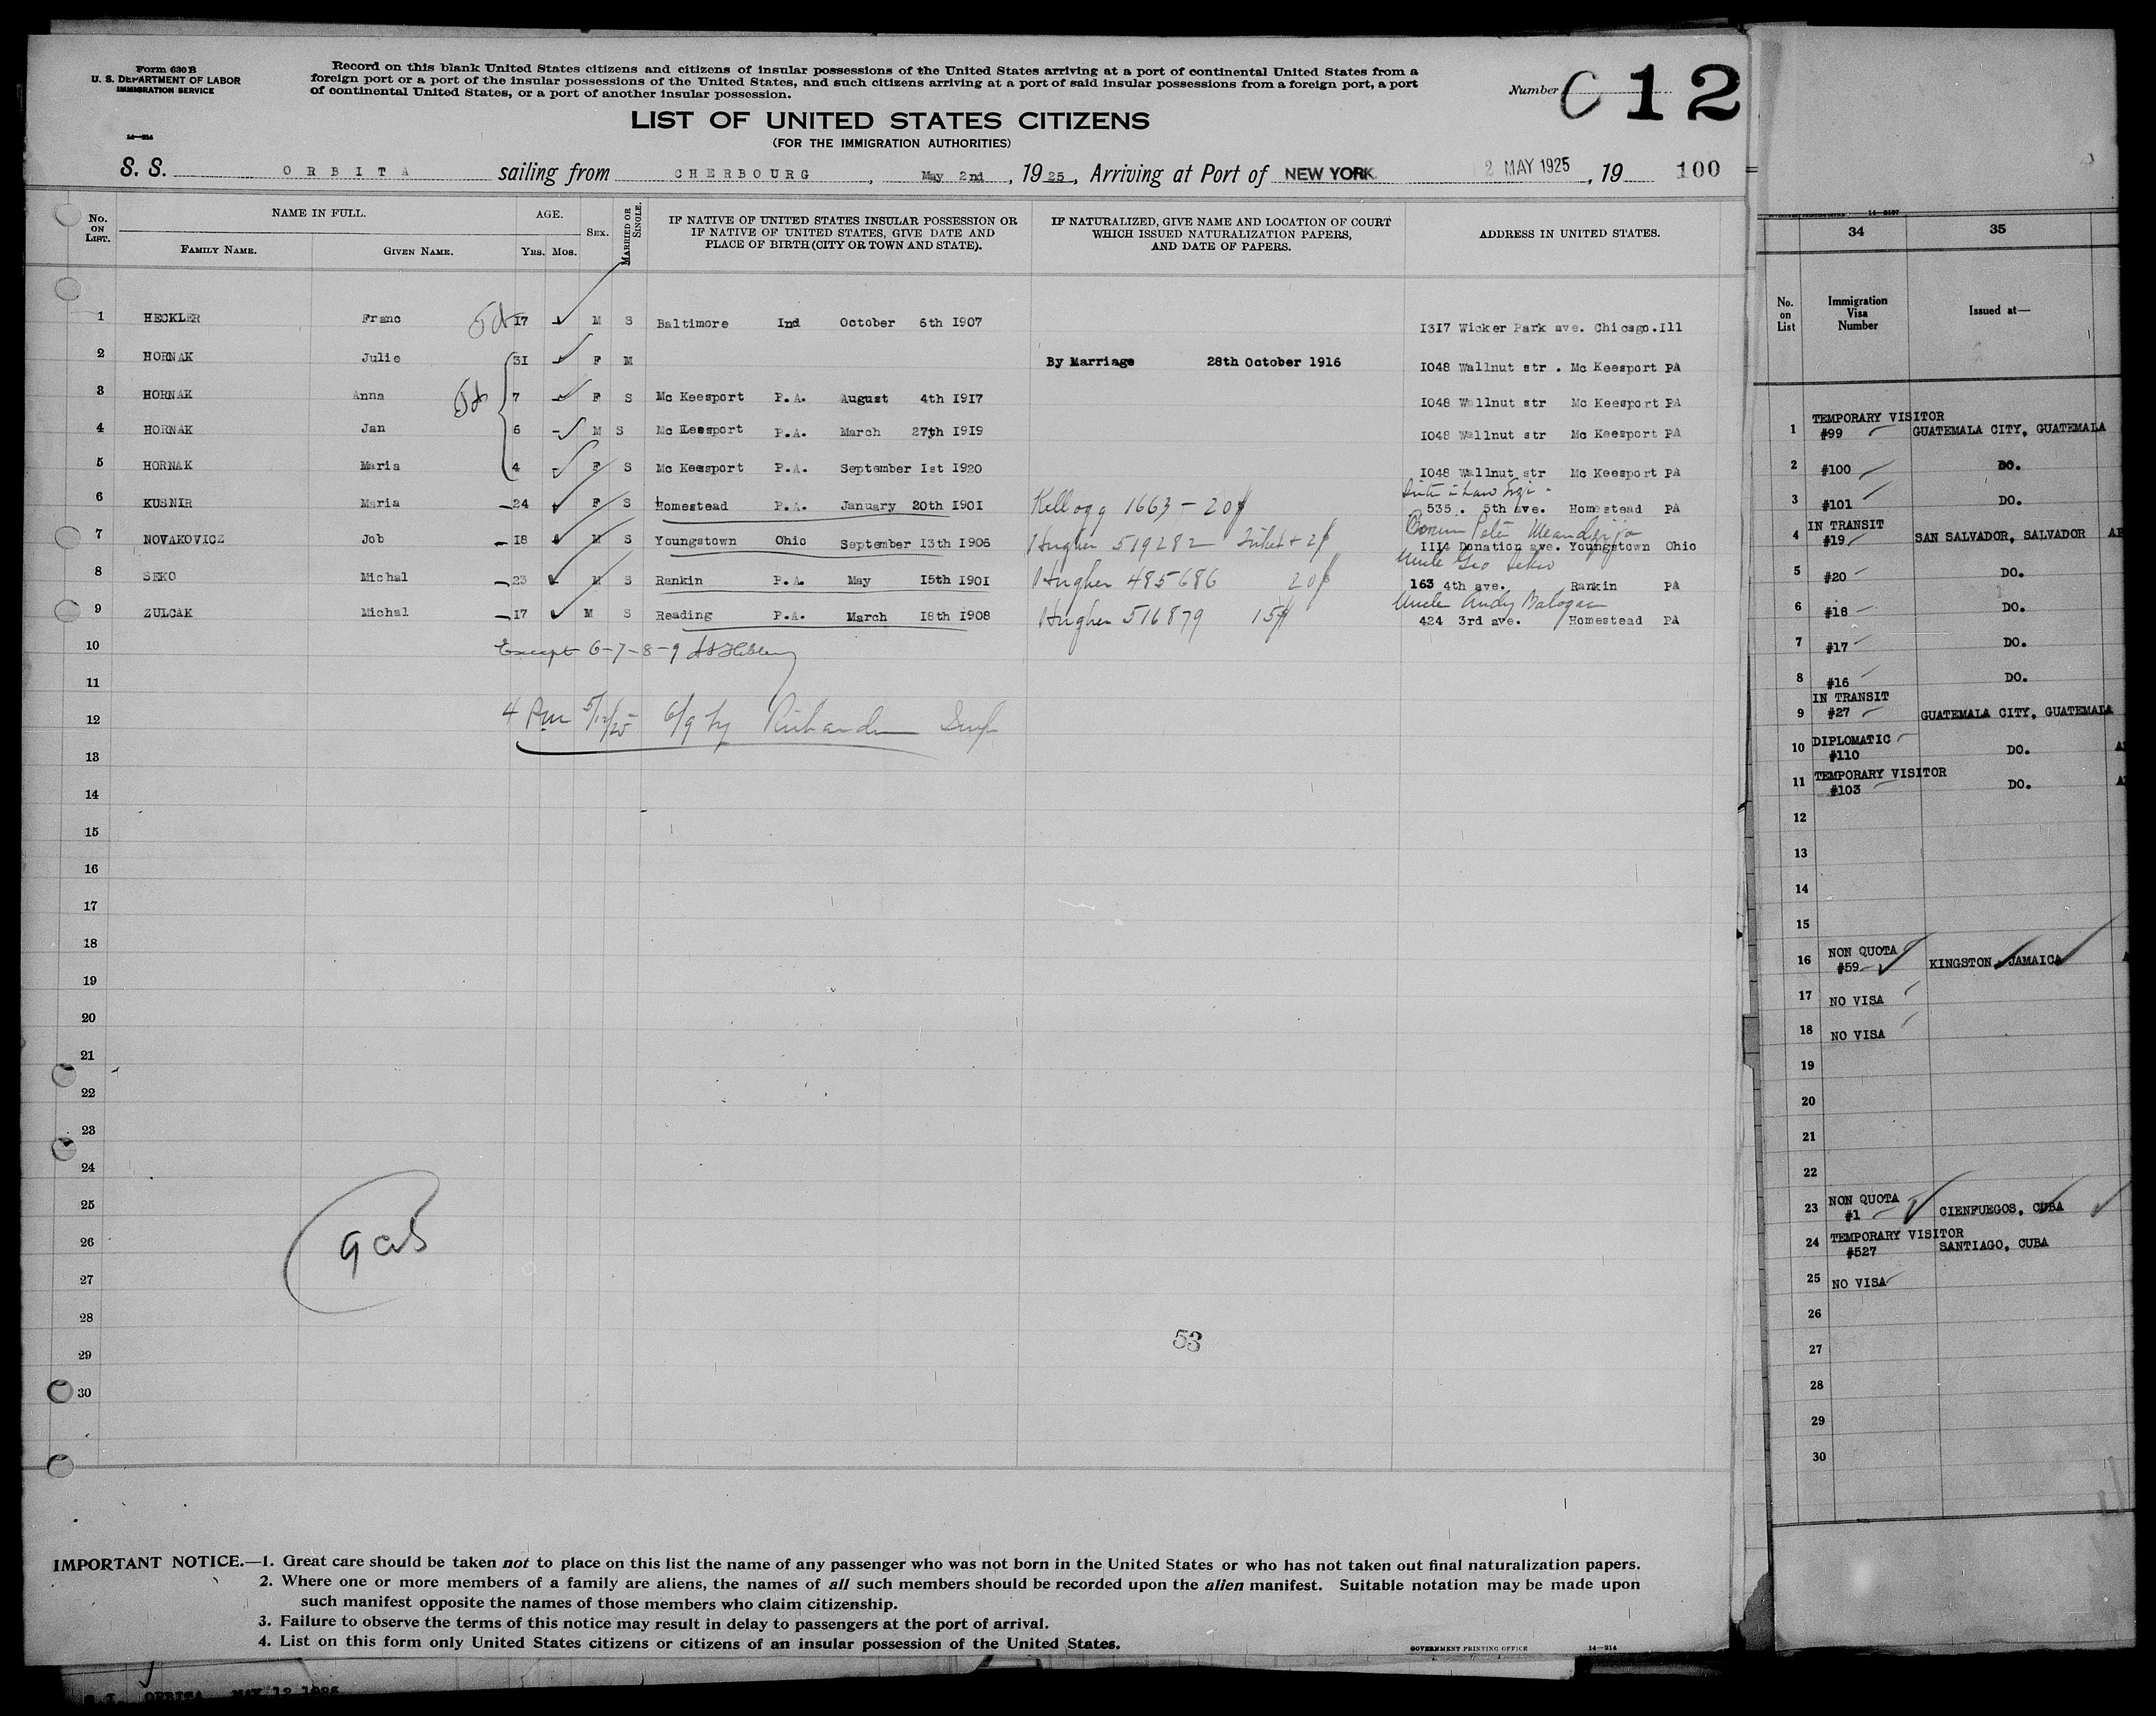 Form 630 B
U. S. DEPARTMENT OF LABOR
IMMIGRATION SERVICE
14—214
Record on this blank United States citizens and citizens of insular possessions of the United States arriving at a port of continental United States from a
foreign port or a port of the insular possessions of the United States, and such citizens arriving at a port of said insular possessions from a foreign port, a port
of continental United States, or a port of another insular possession.
Number C 12
LIST OF UNITED STATES CITIZENS
(FOR THE IMMIGRATION AUTHORITIES)
S. S. ORBITA sailing from CHERBOURG, May 2nd, 1925, Arriving at Port of NEW YORK 2 MAY 1925, 19 100
No. ON LIST. NAME IN FULL. AGE. SEX. MARRIED OR SINGLE. IF NATIVE OF UNITED STATES INSULAR POSSESSION OR IF NATIVE OF UNITED STATES, GIVE DATE AND PLACE OF BIRTH (CITY OR TOWN AND STATE). IF NATURALIZED, GIVE NAME AND LOCATION OF COURT WHICH ISSUED NATURALIZATION PAPERS, AND DATE OF PAPERS. ADDRESS IN UNITED STATES.
FAMILY NAME. GIVEN NAME. YRS. MOS.
1 HECKLER Franc 17 M S Baltimore Ind October 6th 1907 1317 Wicker Park ave. Chicago.Ill
2 HORNAK Julie 31 F M By Marriage 28th October 1916 1048 Wallnut str . Mc Keesport PA
3 HORNAK Anna 7 F S Mc Keesport P.A. August 4th 1917 1048 Wallnut str Mc Keesport PA
4 HORNAK Jan 6 M S Mc Keesport P.A. March 27th 1919 1048 Wallnut str Mc Keesport PA
5 HORNAK Maria 4 F S Mc Keesport P.A. September 1st 1920 1048 Wallnut str Mc Keesport PA
6 KUSNIR Maria 24 F S Homestead P.A. January 20th 1901 Kellogg 1663 - 20 535 . 5th ave. Homestead PA
7 NOVAKOVICZ Job 18 M S Youngstown Ohio September 13th 1906 Hughes 519282 1114 Donation ave. Youngstown Ohio
Uncle Geo Seko
8 SEKO Michal 23 M S Rankin P.A. May 15th 1901 Hughes 485686 20 163 4th ave. Rankin PA
Uncle Andy Balogac
9 ZULCAK Michal 17 M S Reading P.A. March 18th 1908 Hughes 516879 15 424 3rd ave. Homestead PA
10 Except 6-7-8-9
11
12 4 Pm 5/12/25 6/9 by
13
14
15
16
17
18
19
20
21
22
23
24
25
26
27
28
29
30
53
IMPORTANT NOTICE.—1. Great care should be taken not to place on this list the name of any passenger who was not born in the United States or who has not taken out final naturalization papers.
2. Where one or more members of a family are aliens, the names of all such members should be recorded upon the alien manifest. Suitable notation may be made upon
such manifest opposite the names of those members who claim citizenship.
3. Failure to observe the terms of this notice may result in delay to passengers at the port of arrival.
4. List on this form only United States citizens or citizens of an insular possession of the United States.
GOVERNMENT PRINTING OFFICE 14—214
ORBITA MAY 12 1925
34 35
No. on List Immigration Visa Number Issued at—
TEMPORARY VISITOR
1 #99 GUATEMALA CITY, GUATEMALA
2 #100 DO.
3 #101 DO.
IN TRANSIT
4 #19 SAN SALVADOR, SALVADOR
5 #20 DO.
6 #18 DO.
7 #17 DO.
8 #16 DO.
IN TRANSIT
9 #27 GUATEMALA CITY, GUATEMALA
10 DIPLOMATIC
#110 DO.
11 TEMPORARY VISITOR
#103 DO.
12
13
14
15
NON QUOTA
16 #59 KINGSTON, JAMAICA
17 NO VISA
18 NO VISA
19
20
21
22
NON QUOTA
23 #1 CIENFUEGOS, CUBA
24 TEMPORARY VISITOR
#527 SANTIAGO, CUBA
25 NO VISA
26
27
28
29
30